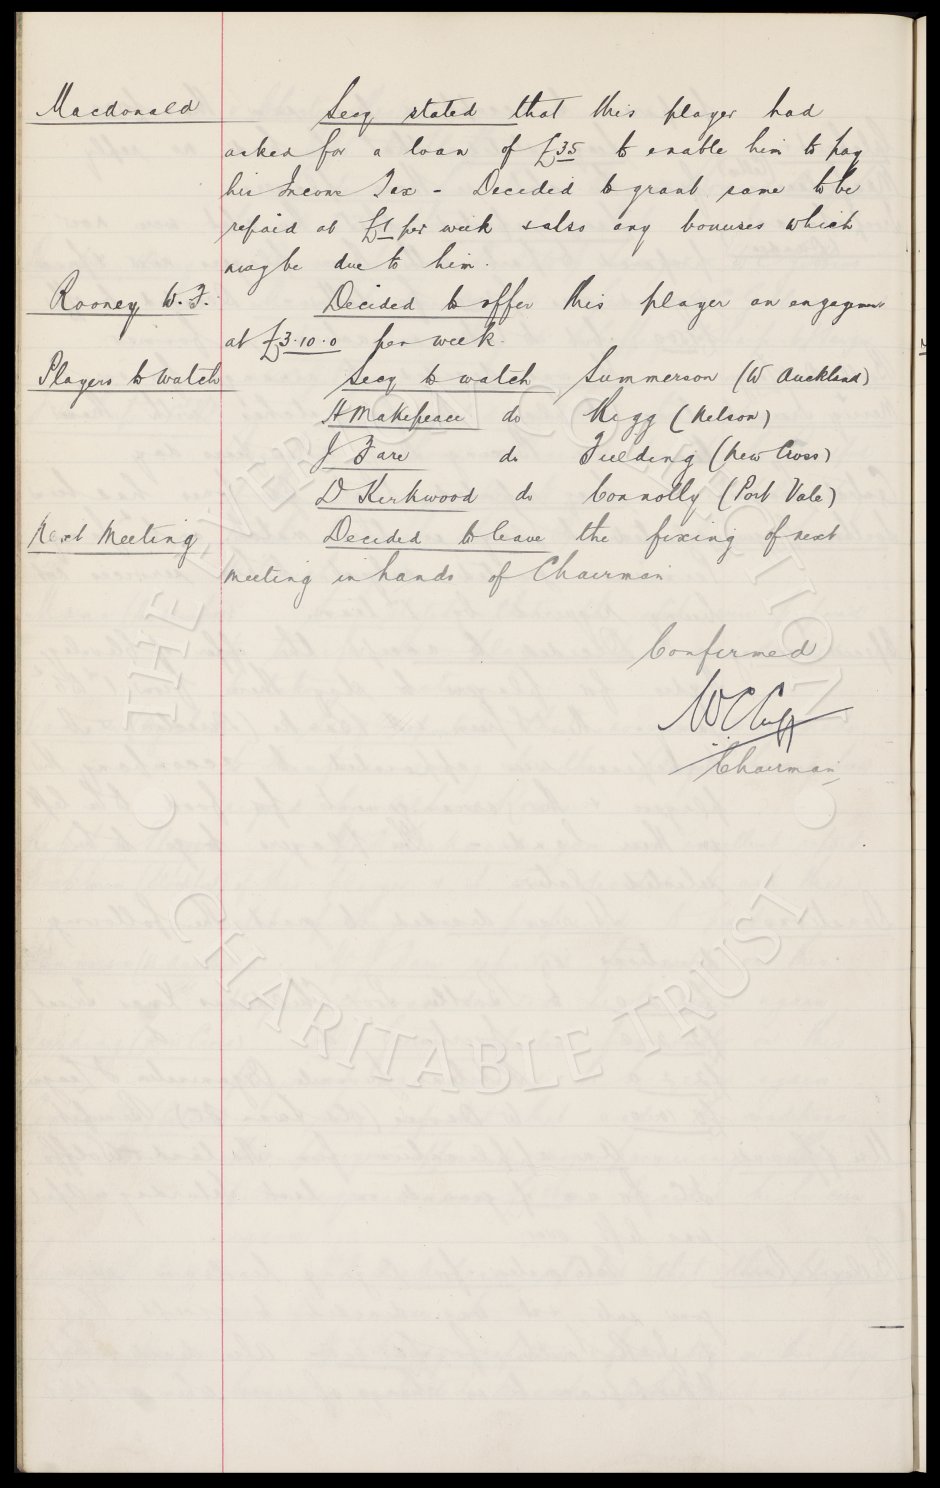 Macdonald Secy stated that this player had
asked for a loan of £35 to enable him to pay
his Income Tax - Decided to grant same to be
repaid at £1 per week & also any bonuses which
may be due to him.
Rooney W. F. Decided to offer this player an engagement
at £3.10.0 per week.
Players to watch Secy to watch Summerson (W Auckland)
H Makepeace do Kegg (Nelson)
J Fare do Fielding (New Cross)
D Kirkwood do Connolly (Port Vale)
Next Meeting Decided to leave the fixing of next
meeting in hands of Chairman
Confirmed
W C Cuff
Chairman
THE EVERTON COLLECTION
CHARITABLE TRUST